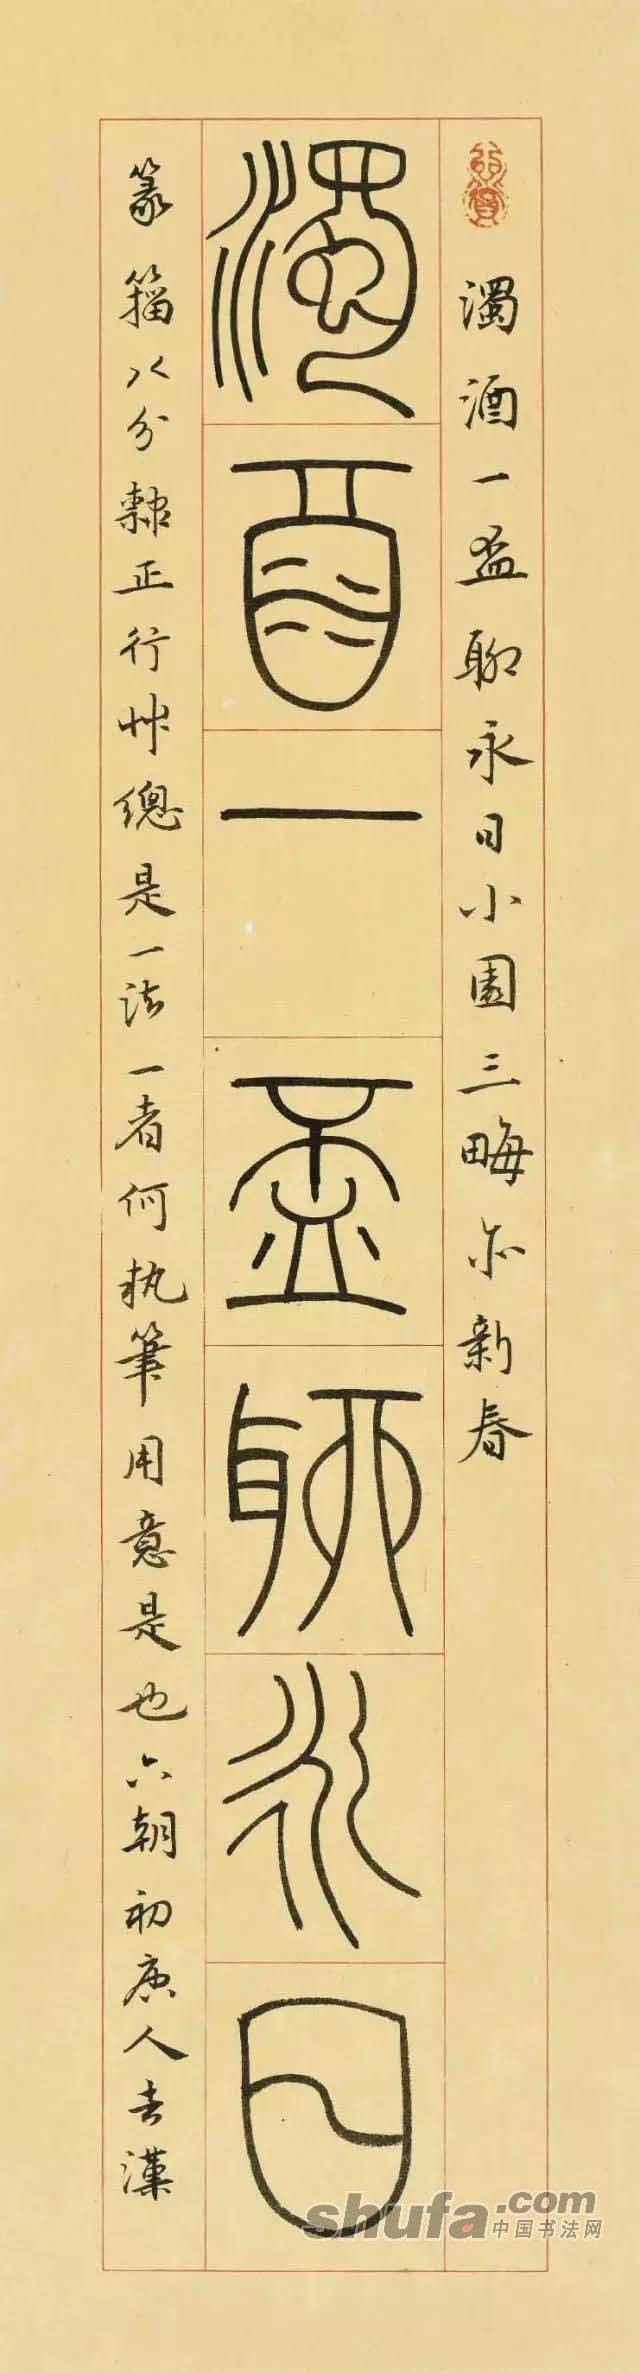 濁酒一盃聊永日小園三畮亦新春
濁酉一盃聊永日
篆籀八分隸正行艸總是一法一者何執筆用意是也六朝初唐人去漢
shufa.com
中国书法网